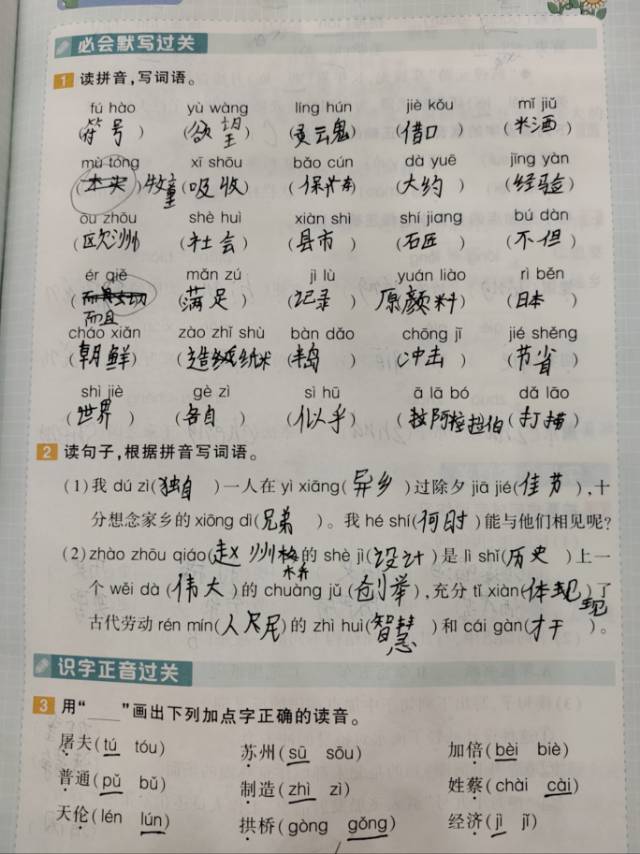 必会默写过关
1 读拼音,写词语。
fú hào yù wàng líng hún jiè kǒu mǐ jiǔ
(符号) (欲望) (灵魂) (借口) (米酒)
mù tóng xī shōu bǎo cún dà yuē jīng yàn
( ) 牧童 (吸收) (保存) (大约) (经验)
ōu zhōu shè huì xiàn shì shí jiang bú dàn
(欧洲) (社会) (县市) (石匠) (不但)
ér qiě mǎn zú jì lù yuán liào rì běn
( ) (满足) (记录) 原颜料) (日本)
而且
cháo xiǎn zào zhǐ shù bàn dǎo chōng jī jié shěng
(朝鲜) (造纸术 ( ) (冲击) (节省)
shì jiè gè zì sì hū ā lā bó dǎ lāo
(世界) (各自) (似乎) ( 阿拉伯 (打捞)
2 读句子,根据拼音写词语。
(1)我 dú zì(独自)一人在 yì xiāng(异乡)过除夕 jiā jié(佳节),十
分想念家乡的 xiōng dì(兄弟)。我 hé shí(何时)能与他们相见呢?
(2)zhào zhōu qiáo(赵州 的 shè jì(设计)是 lì shǐ(历史)上一
桥
个 wěi dà (伟大)的 chuàng jǔ (创举),充分 tǐ xiàn(体现)了
现
古代劳动 rén mín(人民)的 zhì huì(智慧)和 cái gàn(才干)。
识字正音过关
3 用“____”画出下列加点字正确的读音。
屠夫(tú tóu) 苏州(sū sōu) 加倍(bèi biè)
普通(pǔ bǔ) 制造(zhì zì) 姓蔡(chài cài)
天伦(lén lún) 拱桥(gòng gǒng) 经济(jì jǐ)